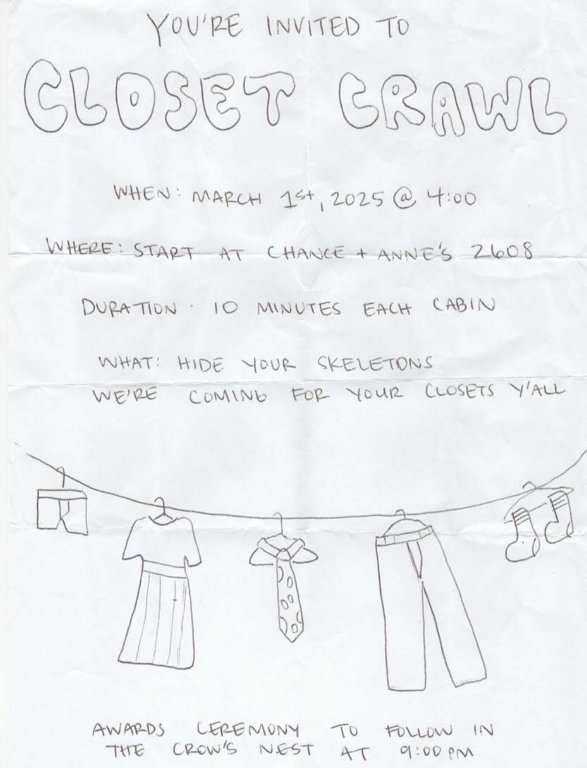 YOU'RE INVITED TO
CLOSET CRAWL
WHEN: MARCH 1st, 2025 @ 4:00
WHERE: START AT CHANCE + ANNE'S 2608
DURATION: 10 MINUTES EACH CABIN
WHAT: HIDE YOUR SKELETONS
WE'RE COMING FOR YOUR CLOSETS Y'ALL
AWARDS CEREMONY TO FOLLOW IN
THE CROW'S NEST AT 9:00 PM